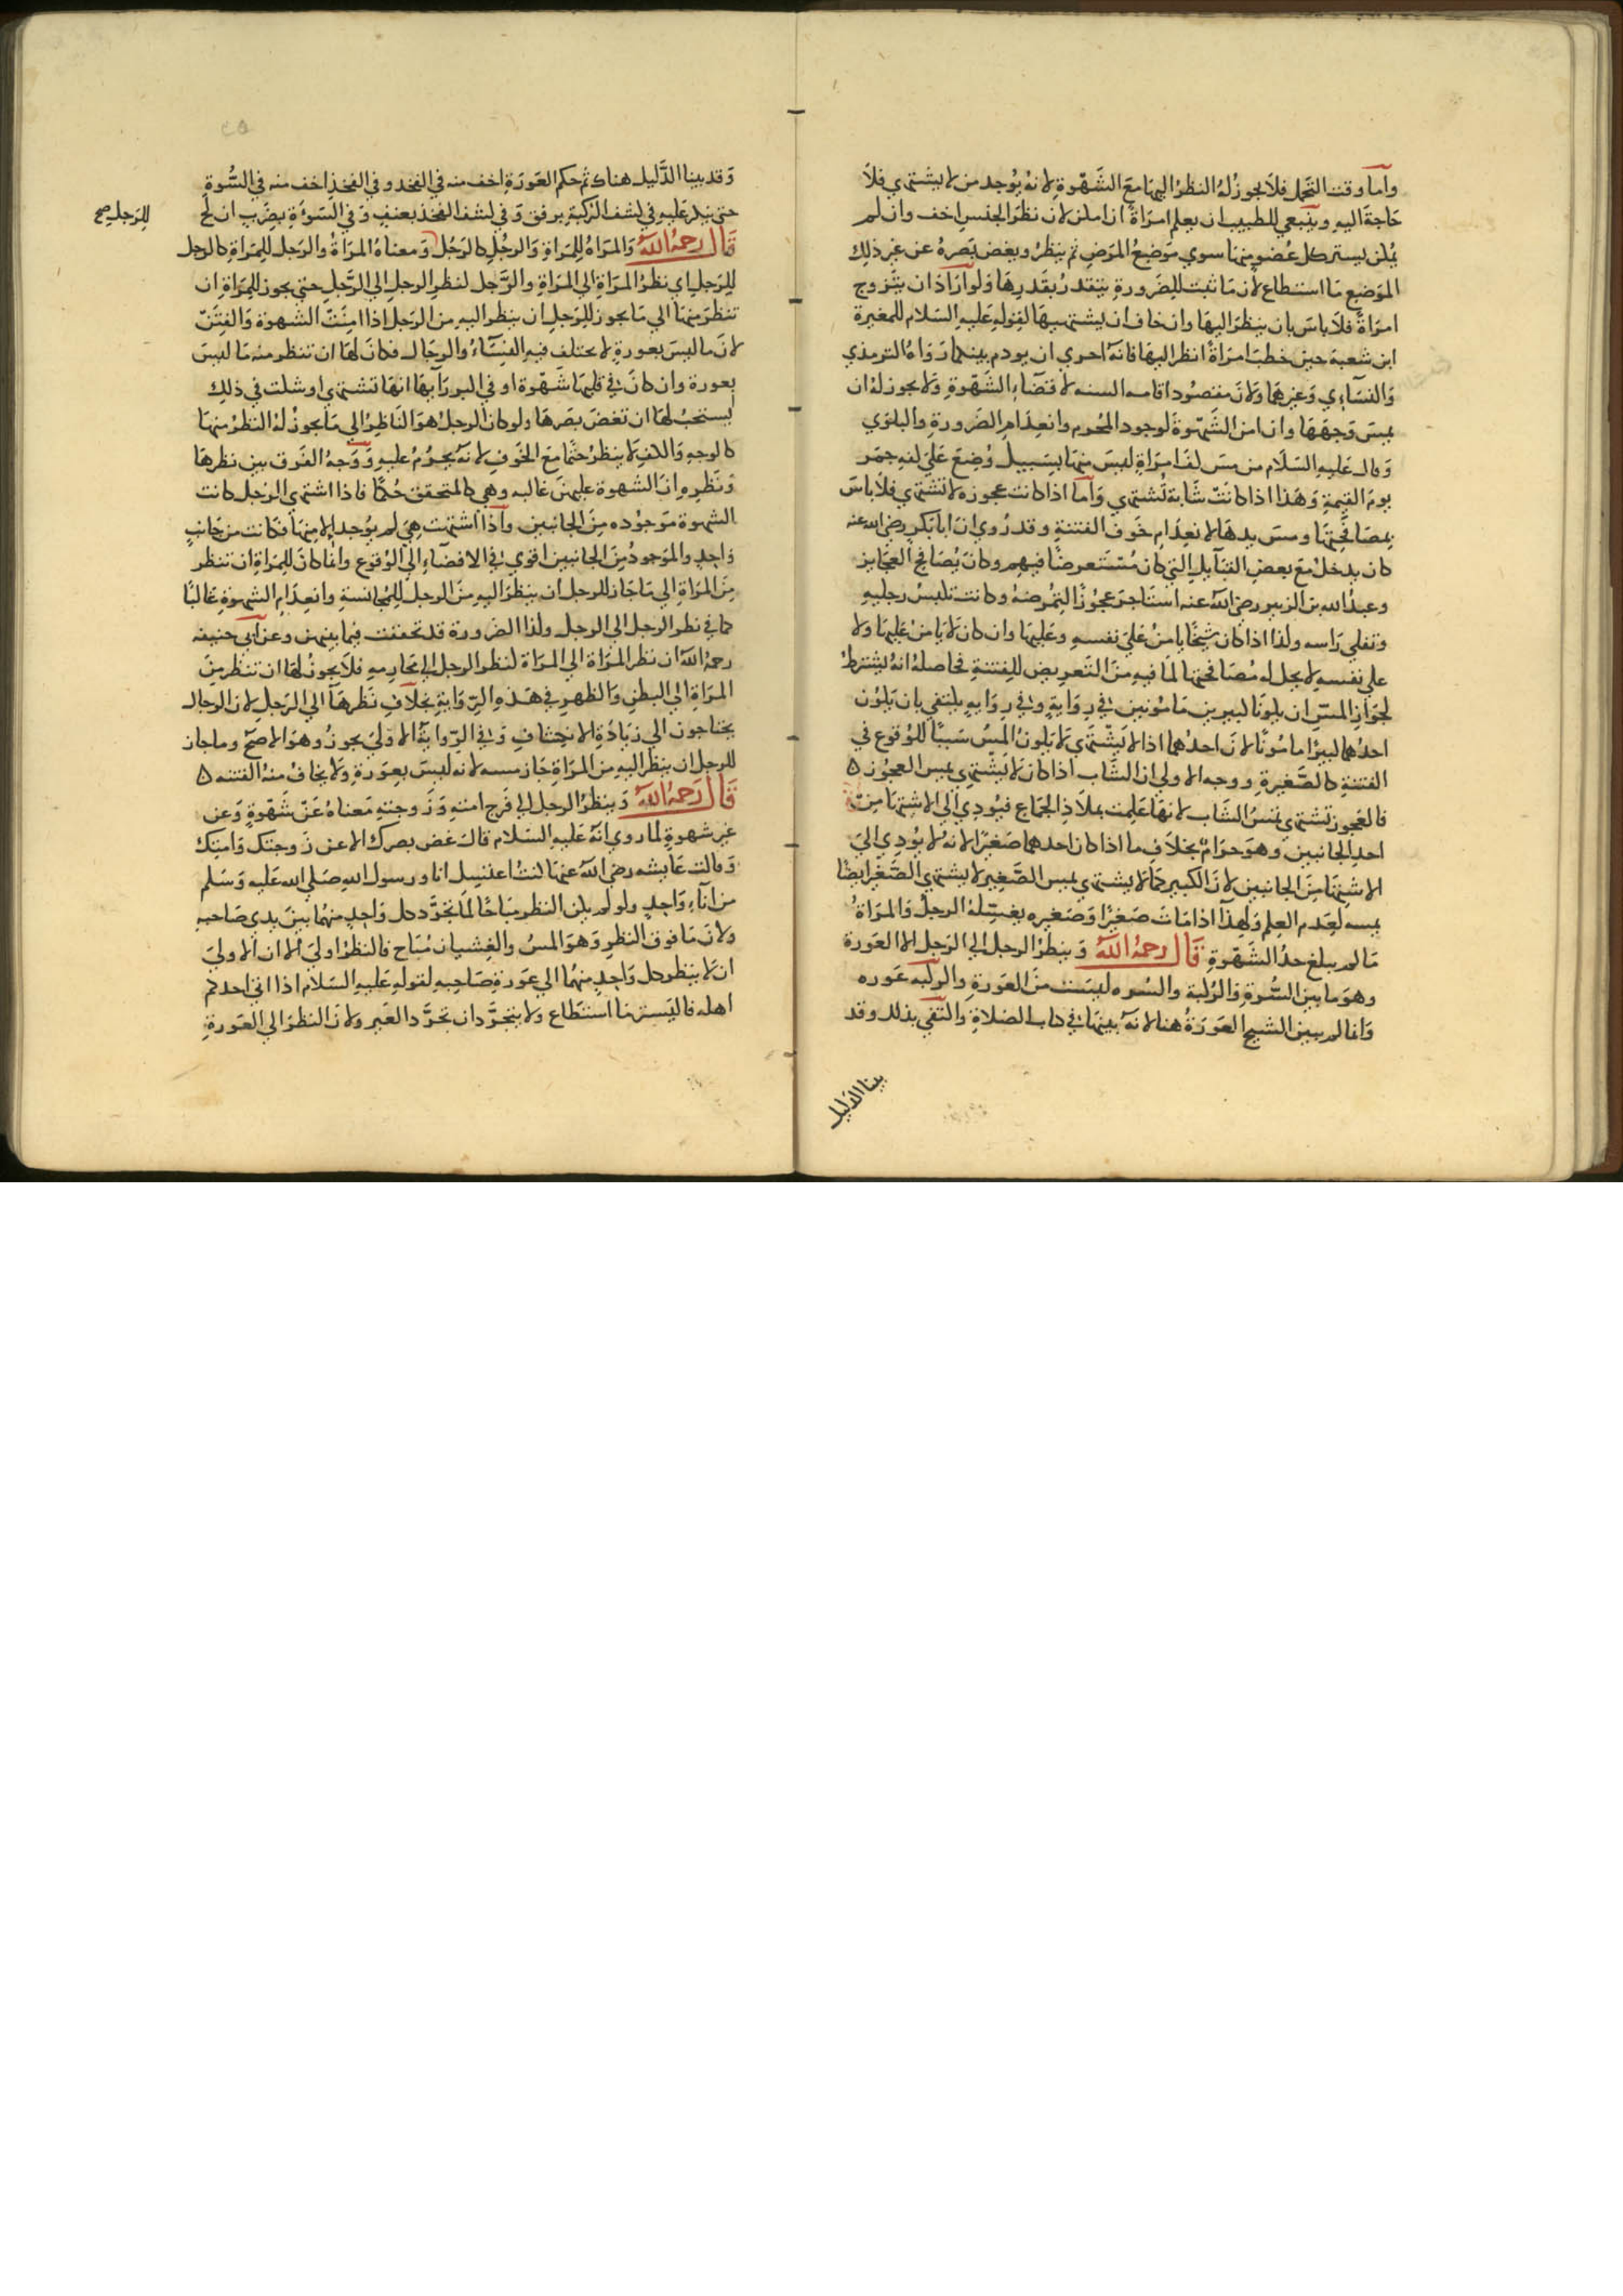 واما وقت التحمل فلا يجوز له النظر اليها مع الشهوة لانه يوجد من لا يشتهي فلا
حاجة اليه وينبغي للطبيب ان يعلم امراة ان امكن لان نظر الجنس اخف وان لم
يمكن يستر كل عضو منها سوي موضع المرض ثم ينظر ويغض بصره عن غير ذلك
الموضع ما استطاع لان ما ثبت للضرورة يتقدر بقدرها ولو اراد ان يتزوج
امراة فلا باس بان ينظر اليها وان خاف ان يشتهيها لقوله عليه السلام للمغيرة
ابن شعبة حين خطب امراة انظر اليها فانه احري ان يودم بينكما رواه الترمذي
والنساءي وغيرهما ولان مقصوده اقامه السنه لا قضاء الشهوة ولا يجوز له ان
يمس وجهها وان امن الشهوة لوجود المحرم وانعدام الضرورة والبلوي
وقال عليه السلام من مس كف امراة ليس منها بسبيل وضع علي كفه جمر
يوم القيمة وهذا اذا كانت شابة تشتهي واما اذا كانت عجوزه لا تشتهي فلا باس
بمصافحتها ومس يدها لانعدام خوف الفتنة وقد روي ان ابا بكر رضي الله عنه
كان يدخل مع بعض القبآيل التي كان مستعرضا فيهم وكان يصافح العجايز
وعبد الله بن الزبير رضي الله عنه استاجر عجوزا لتمرضه وكانت تلبس رجليه
وتفلي راسه ولذا اذا كان شيخا يامن علي نفسه وعليها وان كان لا يامن عليها ولا
علي نفسه لا يحل له مصافحتها لما فيه من التعريض للفتنة فحاصله انه يشترط
لجواز المس ان يكونا كبيرين مامونين في رواية وفي روايه يكتفي بان يكون
احدهما كبيرا مامونا لان احدهما اذا لا يشتهي لا يكون المس سببا للوقوع في
الفتنة كالصغيرة ووجه الاولي ان الشاب اذا كان لا يشتهي بمس العجوز ه
فالعجوز تشتهي بمس الشاب لانها علمت بملاذ الجماع فيودي الي الاشتها من
احد الجانبين وهو حرام بخلاف ما اذا كان احدهما صغيرا لانه لا يودي الي
الاشتها من الجانبين لان الكبير كما لا يشتهي بمس الصغير لا يشتهي الصغير ايضا
بمسه لعدم العلم ولهذا اذا مات صغيرا وصغيره يغسله الرجل والمراة
ما لم يبلغ حد الشهوة قال رحمه الله وينظر الرجل الي الرجل الا العورة
وهو ما بين السرة والركبة والسره ليست من العورة والركبه عوره
وانما لم يبين الشيخ العورة هنا لانه بينها في كتاب الصلاة واكتفي بذلك وقد
بينا الدليل
وقد بينا الدليل هناك ثم حكم العورة اخف منه في الفخد وفي الفخذ اخف منه في السوة
حتي ينكر عليه في كشف الركبة برفق وفي كشف الفخذ بعنف وفي السوءة بضرب ان لج
قال رحمه الله والمراة للمراة والرجل كالرجل ومعناه المراة والرجل للمراة كالرجل
للرجل صح
للرجل اي نظر المراة الي المراة والرجل كنظر الرجل الي الرجل حتي يجوز للمراة ان
تنظر منها الي ما يجوز للرجل ان ينظر اليه من الرجل اذا امنت الشهوة والفتن
لان ما ليس بعورة لا يختلف فيه النساء والرجال فكان لها ان تنظر منه ما ليس
بعورة وان كان في قلبها شهوة او في اكبر رآيها انها تشتهي او شكت في ذلك
يستحب لها ان تغض بصرها ولو كان الرجل هو الناظر الي ما يجوز له النظر منها
كالوجه والكف لا ينظر حتما مع الخوف لانه يحرم عليه ووجه الفرق بين نظرها
ونظره ان الشهوة عليهن غالبه وهي كالمتحقق حكما فاذا اشتهي الرجل كانت
الشهوة موجوده من الجانبين واذا اشتهت هي لم يوجد الا منها فكانت من جانب
واحد والموجود من الجانبين اقوي في الافضاء الي الوقوع وانما كان للمراة ان تنظر
من المراة الي ما جاز للرجل ان ينظر اليه من الرجل للمجانسة وانعدام الشهوة غالبا
كما في نظر الرجل الي الرجل ولذا الضرورة قد تحققت فيما بينهن وعن ابي حنيفه
رحمه الله ان نظر المراة الي المراة كنظر الرجل الي محارمه فلا يجوز لها ان تنظر من
المراة الي البطن والظهر في هذه الرواية بخلاف نظرها الي الرجل لان الرجال
يحتاجون الي زيادة الانكشاف وفي الرواية الاولي يجوز وهو الاصح وما جاز
للرجل ان ينظر اليه من المراة جاز مسه لانه ليس بعورة ولا يخاف منه الفتنه ه
قال رحمه الله وينظر الرجل الي فرج امته وزوجته معناه عن شهوة وعن
غير شهوة لما روي انه عليه السلام قال غض بصرك الا عن زوجتك وامتك
وقالت عايشه رضي الله عنها كنت اغتسل انا ورسول الله صلي الله عليه وسلم
من انآء واحد ولو لم يكن النظر مباحا لما تجرد كل واحد منهما بين يدي صاحبه
ولان ما فوق النظر وهو المس والغشيان مباح فالنظر اولي الا ان الاولي
ان لا ينظر كل واحد منهما الي عورة صاحبه لقوله عليه السلام اذا اتي احدكم
اهله فاليستر ما استطاع ولا يتجردان تجرد العير ولان النظر الي العورة